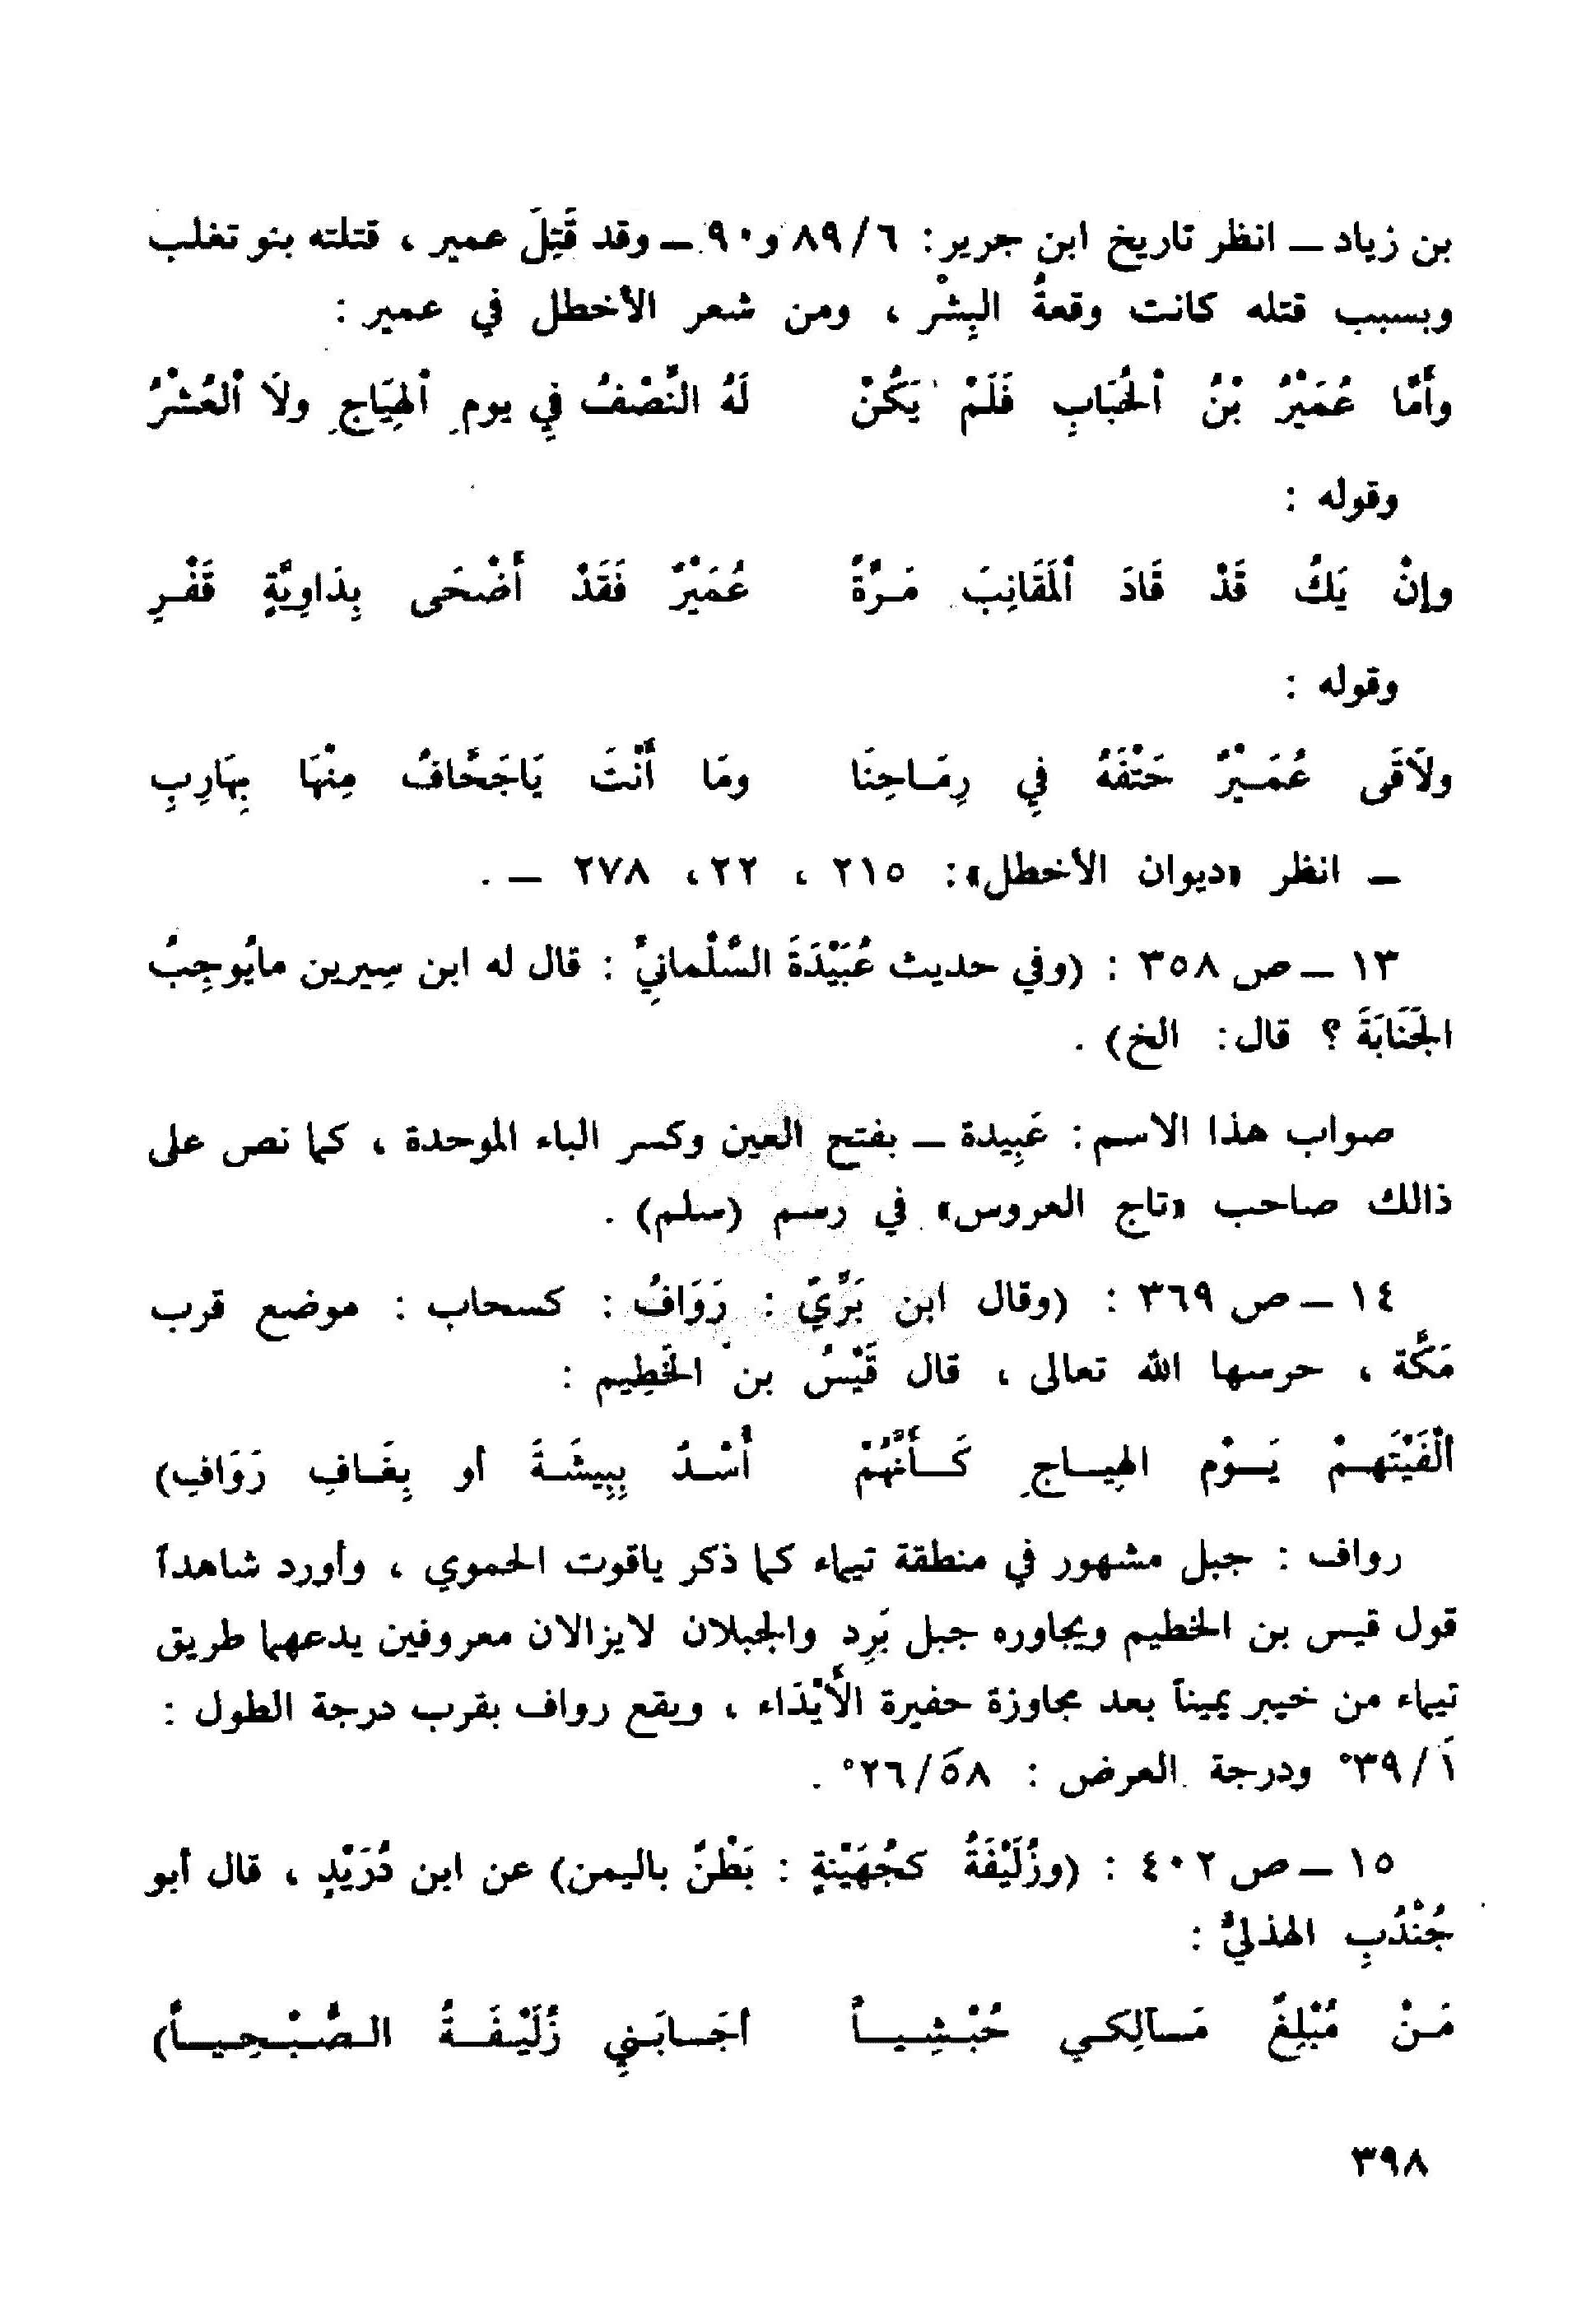 بن زياد ــ انظر تاريخ ابن جرير: ٨٩/٦ و٩٠ ــ وقد قُتِلَ عمير ، قتلته بنو تغلب
وبسبب قتله كانت وقعةُ البِشْر ، ومن شعر الأخطل في عمير :
وأَمَّا عُمَيْرُ بْنُ ٱلْحُبَابِ فَلَمْ يَكُنْ لَهُ النِّصْفُ فِي يومِ ٱلْهِيَاجِ ولَا ٱلْعُشْرُ
وقوله :
وإنْ يَكُ قَدْ قَادَ ٱلْمَقَانِبَ مَـرَّةً عُمَيْرٌ فَقَدْ أَضْحَى بِدَاوِيَّةٍ قَفْـرِ
وقوله :
ولَاقَى عُمَـيْرٌ حَتْفَهُ فِي رِمَـاحِنَا ومَا أَنْتَ يَاجَحَّافُ مِنْهَا بِهَارِبِ
ــ انظر «ديوان الأخطل»: ٢١٥ ، ٢٢، ٢٧٨ ــ .
١٣ ــ ص ٣٥٨ : (وفي حديث عُبَيْدَةَ السَّلْمانيِّ : قال له ابن سِيرين مايُوجِبُ
الجَنَابَةَ ؟ قال: الخ) .
صواب هذا الاسم: عَبِيدة ــ بفتح العين وكسر الباء الموحدة ، كما نص على
ذالك صاحب «تاج العروس» في رسم (سلم) .
١٤ ــ ص ٣٦٩ : (وقال ابن بَرِّيّ : رَوَافُ : كسحاب : موضع قرب
مَكَّة ، حرسها الله تعالى ، قال قَيْسُ بن الخَطِيم :
ٱلْفَيْتَهـمْ يَــوْم الهِيــاجِ كَــأَنَّهُمْ أُسْـدٌ بِبِيشَـةَ أو بِغَـافِ رَوَافِ)
رواف : جبل مشهور في منطقة تيماء كما ذكر ياقوت الحموي ، وأورد شاهداً
قول قيس بن الخطيم ويجاوره جبل بَرِد والجبلان لايزالان معروفين يدعهما طريق
تيماء من خيبر يميناً بعد مجاوزة حفيرة الأَيْدَاء ، ويقع رواف بقرب درجة الطول :
١َ/٣٩° ودرجة العرض : ٥٨َ/٢٦° .
١٥ ــ ص ٤٠٢ : (وزُلَيْفَةُ كجُهَيْنةٍ : بَطْنٌ باليمن) عن ابن دُرَيْدٍ ، قال أبو
جُنْدُبِ الهذليُّ :
مَـنْ مُبْلِغٌ مَـآلِكي حُبْـشِيــاً أجَــابَـنِي زُلَيْـفَــةُ الـصُّـبْـحِيــاً)
٣٩٨